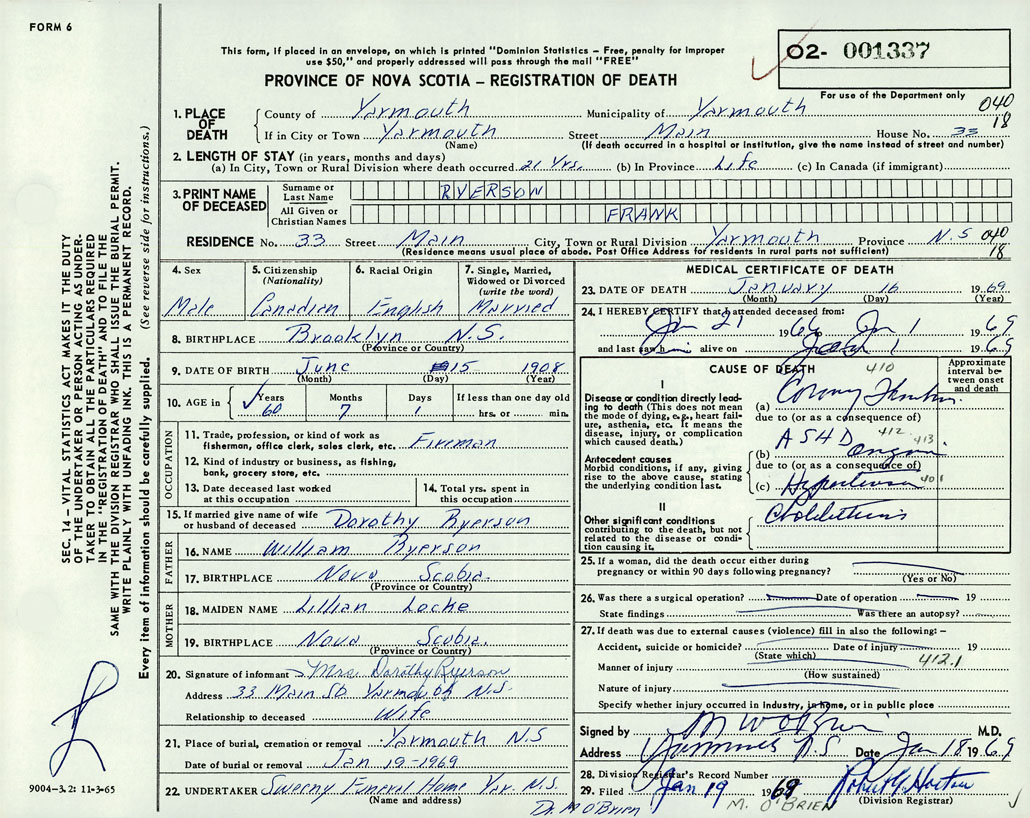 FORM 6
This form, if placed in an envelope, on which is printed "Dominion Statistics – Free, penalty for improper
use $50," and properly addressed will pass through the mail "FREE"
PROVINCE OF NOVA SCOTIA – REGISTRATION OF DEATH
02- 001337
For use of the Department only
040
18
1. PLACE OF DEATH
County of Yarmouth Municipality of Yarmouth
If in City or Town Yarmouth Street Main House No. 33
(Name) (If death occurred in a hospital or Institution, give the name instead of street and number)
2. LENGTH OF STAY (in years, months and days)
(a) In City, Town or Rural Division where death occurred 21 Yrs. (b) In Province Life (c) In Canada (if immigrant)
3. PRINT NAME OF DECEASED
Surname or Last Name RYERSON
All Given or Christian Names FRANK
RESIDENCE No. 33 Street Main City, Town or Rural Division Yarmouth Province N.S 040
18
(Residence means usual place of abode. Post Office Address for residents in rural parts not sufficient)
4. Sex 5. Citizenship 6. Racial Origin 7. Single, Married,
(Nationality) Widowed or Divorced
(write the word)
Male Canadian English Married
8. BIRTHPLACE Brooklyn N.S.
(Province or Country)
9. DATE OF BIRTH June 15 1908
(Month) (Day) (Year)
10. AGE in Years Months Days If less than one day old
60 7 1 hrs. or min.
OCCUPATION
11. Trade, profession, or kind of work as
fisherman, office clerk, sales clerk, etc. Fireman
12. Kind of industry or business, as fishing,
bank, grocery store, etc.
13. Date deceased last worked
at this occupation
14. Total yrs. spent in
this occupation
15. If married give name of wife
or husband of deceased Dorothy Ryerson
FATHER
16. NAME William Ryerson
17. BIRTHPLACE Nova Scotia.
(Province or Country)
MOTHER
18. MAIDEN NAME Lillian Locke
19. BIRTHPLACE Nova Scotia.
(Province or Country)
20. Signature of informant Mrs. Dorothy Ryerson
Address 33 Main St Yarmouth N.S.
Relationship to deceased Wife
21. Place of burial, cremation or removal Yarmouth N.S
Date of burial or removal Jan 19-1969
22. UNDERTAKER Sweeny Funeral Home Yar. N.S.
(Name and address)
MEDICAL CERTIFICATE OF DEATH
23. DATE OF DEATH January 16 1969
(Month) (Day) (Year)
24. I HEREBY CERTIFY that I attended deceased from:
Jan 21 1966 Jan 1 1969
and last saw him alive on Jan 1 1969
CAUSE OF DEATH 410
Approximate interval between onset and death
I
Disease or condition directly lead-
ing to death (This does not
mean the mode of dying, e.g., heart fail-
ure, asthenia, etc. It means the
disease, injury, or complication
which caused death.)
(a)
due to (or as a consequence of)
ASHD 412 413
Antecedent causes
Morbid conditions, if any, giving
rise to the above cause, stating
the underlying condition last.
(b) Angina
due to (or as a consequence of)
(c) Hypertension 401
II
Other significant conditions
contributing to the death, but not
related to the disease or condi-
tion causing it.
25. If a woman, did the death occur either during
pregnancy or within 90 days following pregnancy?
(Yes or No)
26. Was there a surgical operation? Date of operation 19
State findings Was there an autopsy?
27. If death was due to external causes (violence) fill in also the following: –
Accident, suicide or homicide? Date of injury 19
(State which)
Manner of injury 412.1
(How sustained)
Nature of injury
Specify whether injury occurred in Industry, in home, or in public place
Signed by M W O'Brien M.D.
Address N.S. Date Jan 18 1969
28. Division Registrar's Record Number
29. Filed Jan 19 1969 Robert G. Horton
(Division Registrar)
Dr. M O'Brien M. O'BRIEN
SEC. 14 – VITAL STATISTICS ACT MAKES IT THE DUTY
OF THE UNDERTAKER OR PERSON ACTING AS UNDER-
TAKER TO OBTAIN ALL THE PARTICULARS REQUIRED
IN THE "REGISTRATION OF DEATH" AND TO FILE THE
SAME WITH THE DIVISION REGISTRAR WHO SHALL ISSUE THE BURIAL PERMIT.
WRITE PLAINLY WITH UNFADING INK. THIS IS A PERMANENT RECORD.
Every item of information should be carefully supplied. (See reverse side for instructions.)
9004-3.2: 11-3-65